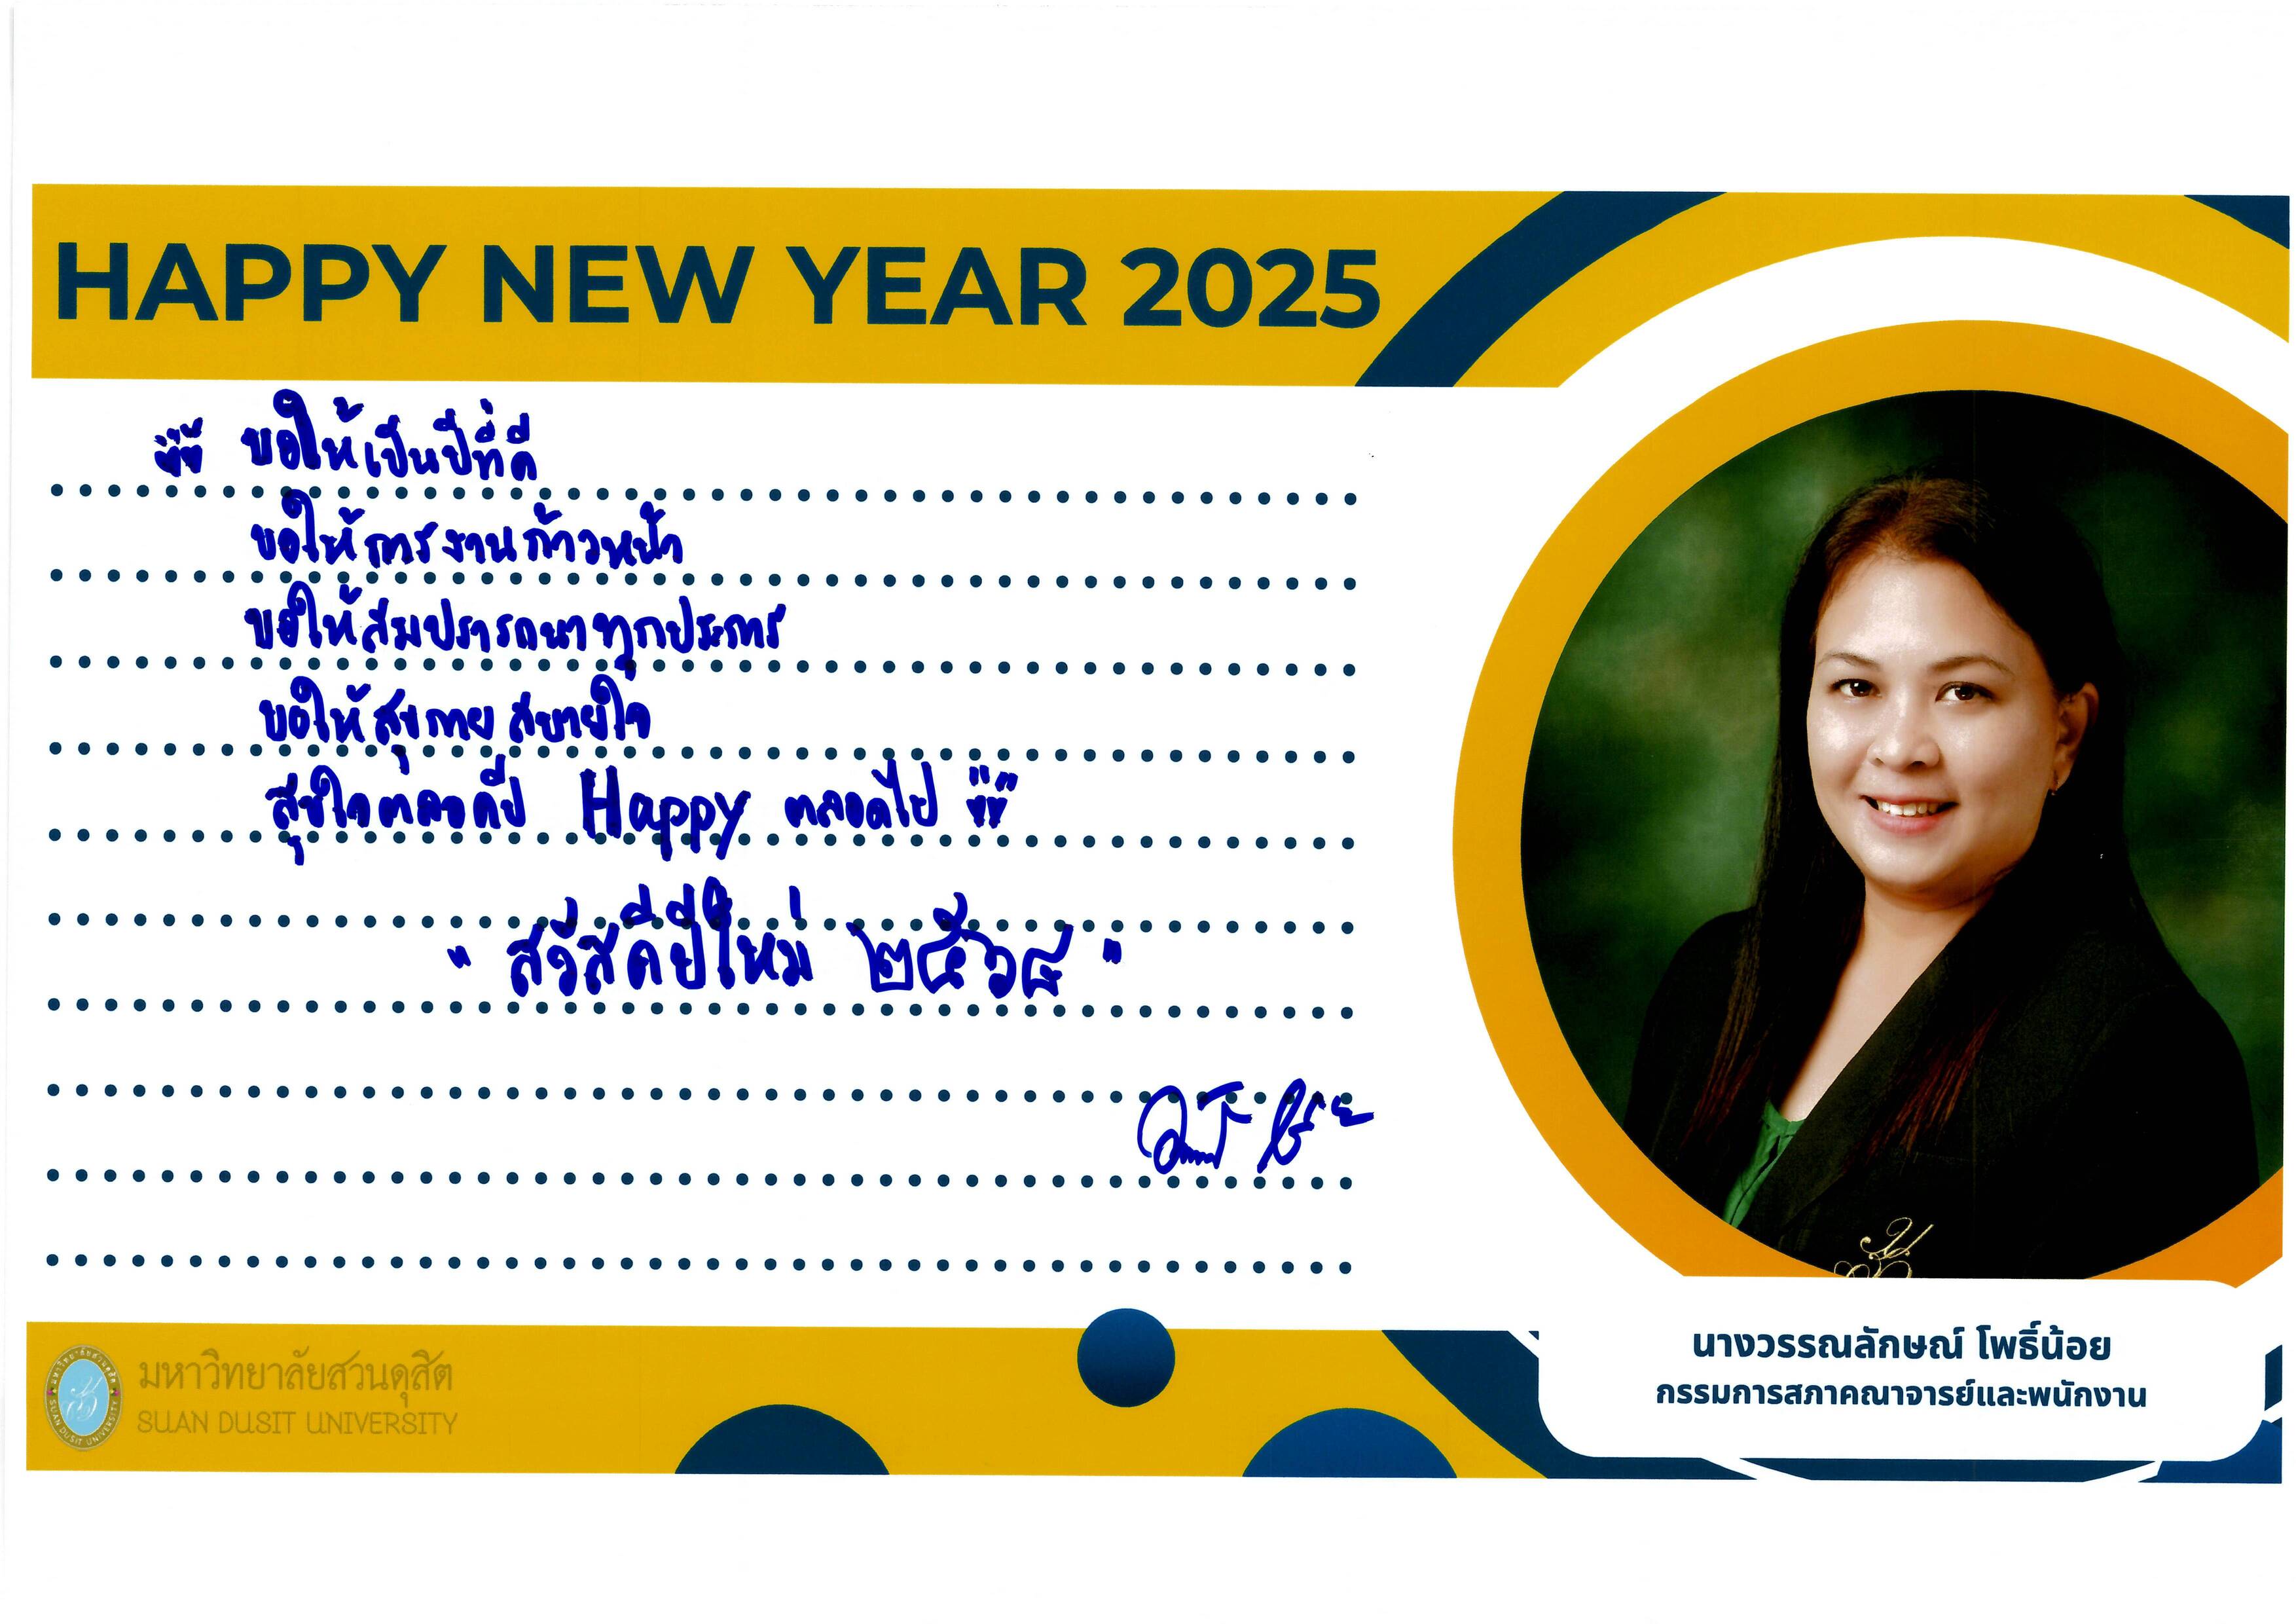 HAPPY NEW YEAR 2025
ขอให้เป็นปีที่ดี
ขอให้การงานก้าวหน้า
ขอให้สมปรารถนาทุกประการ
ขอให้สุขกาย สบายใจ
สุขใจตลอดปี Happy ตลอดไป
" สวัสดีปีใหม่ ๒๕๖๘ "
นางวรรณลักษณ์ โพธิ์น้อย
กรรมการสภาคณาจารย์และพนักงาน
มหาวิทยาลัยสวนดุสิต
SUAN DUSIT UNIVERSITY